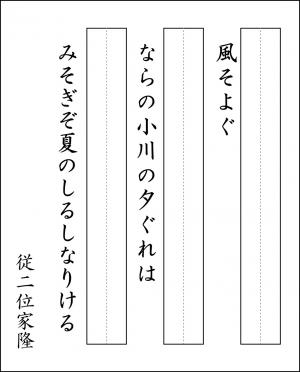 風そよぐ
ならの小川の夕ぐれは
みそぎぞ夏のしるしなりける
従二位家隆